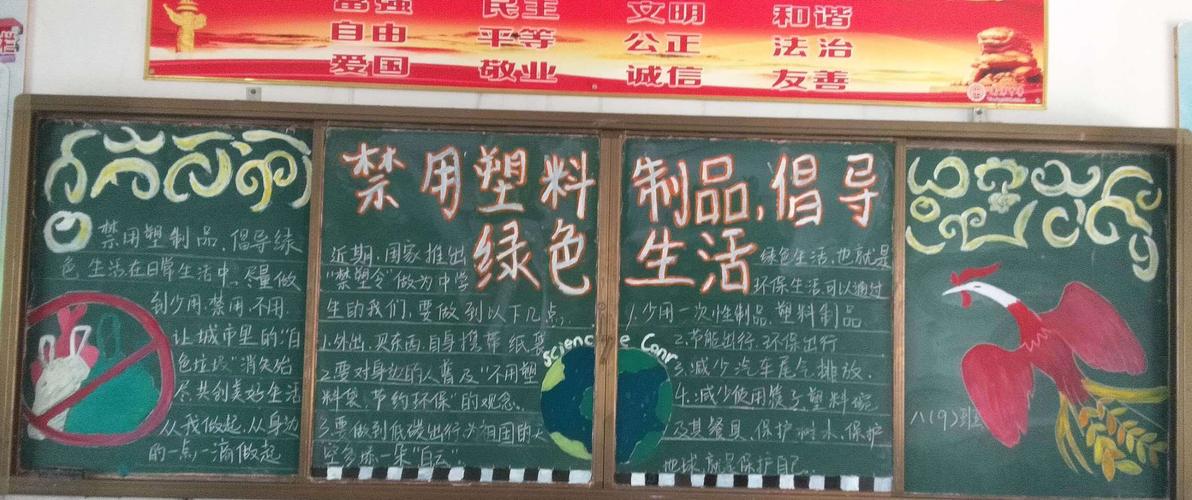 富强 民主 文明 和谐
自由 平等 公正 法治
爱国 敬业 诚信 友善
禁用塑料制品,倡导
绿色生活
禁用塑制品,倡导绿
色生活在日常生活中,尽量做
到少用.禁用.不用.
让城市里的"白
色垃圾"消失殆
尽共创美好生活
从我做起.从身边
的一点一滴做起
近期.国家推出
"禁塑令"做为中学
生的我们,要做到以下几点.
1.外出.买东西.自身携带纸袋
2.要对身边的人普及"不用塑
料袋.节约环保"的观念.
3.要做到低碳出行.为祖国的天
空多添一朵"白云".
Science
e Conr
绿色生活.也就是
环保生活.可以通过
1.少用一次性制品.塑料制品
2.节能出行.环保出行
3.减少汽车尾气排放.
4.减少使用筷子.塑料碗
及其餐具.保护树木.保护
地球.就是保护自己.
八(9)班